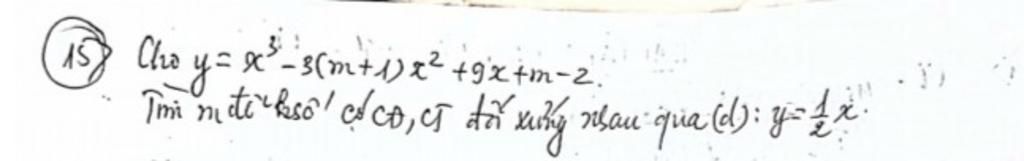 15 Cho y = x³ - 3(m+1)x² + 9x + m - 2.
Tìm m để hsố có CĐ, CT đối xứng nhau qua (d): y = ½x.